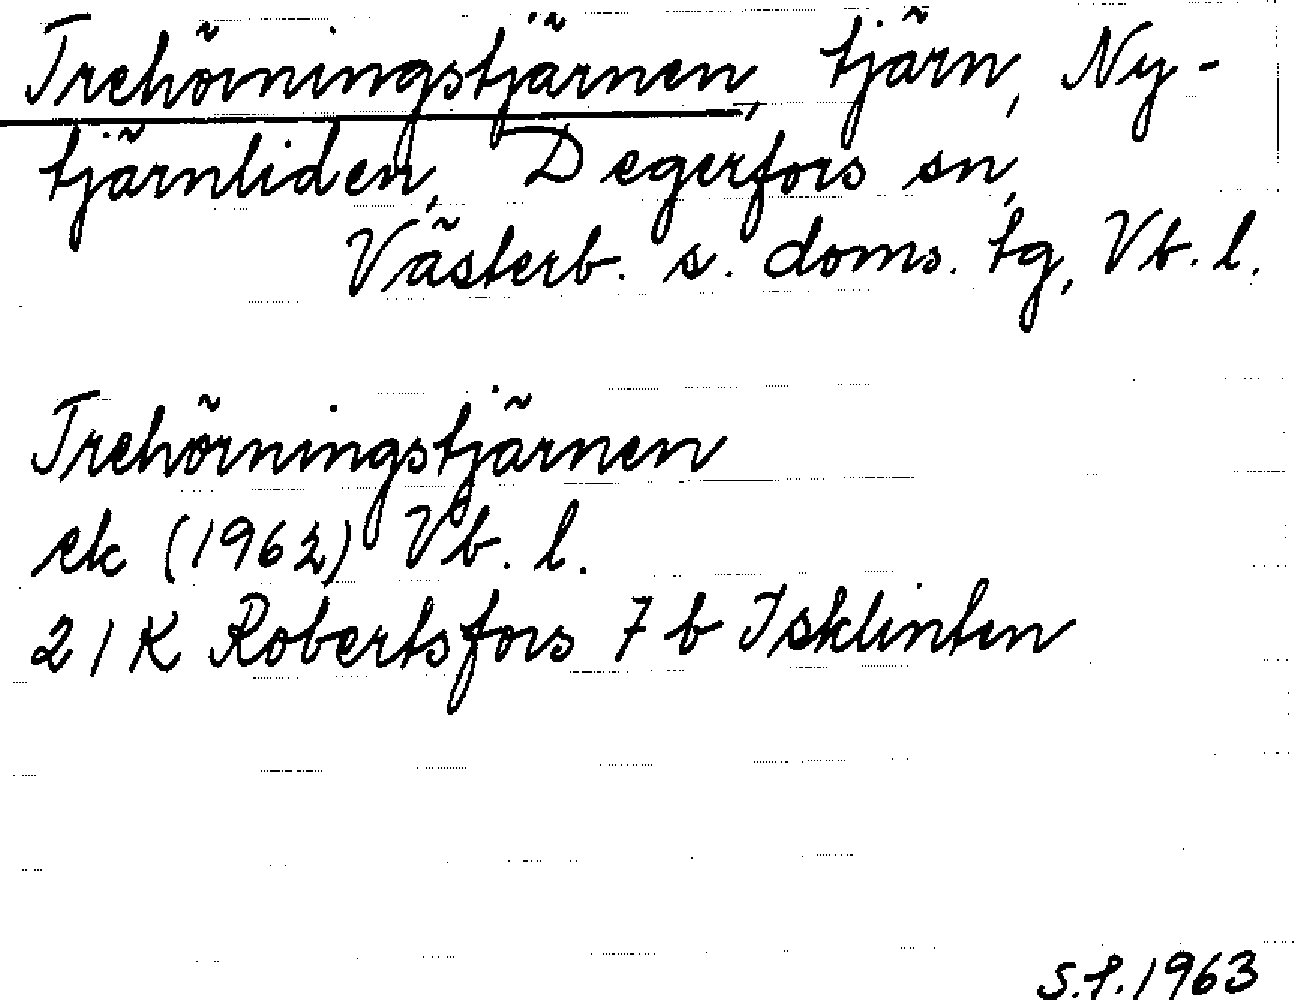 Trehörningstjärnen, tjärn, Ny-
tjärnliden, Degerfors sn,
Västerb. s. doms. tg, Vb. l.
Trehörningstjärnen
ek (1962) Vb. l.
21K Robertsfors 7 b Isklinten
S.F. 1963